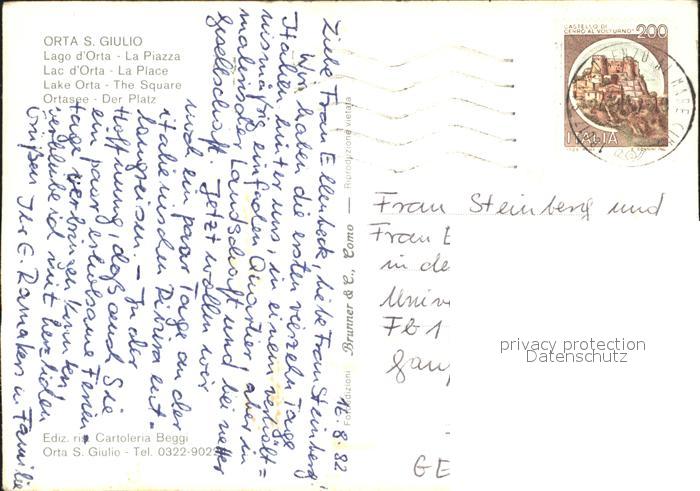 ORTA S. GIULIO
Lago d'Orta - La Piazza
Lac d'Orta - La Place
Lake Orta - The Square
Ortasee - Der Platz
16.8.82
Liebe Frau Ellenbeck, liebe Frau Steinberg,
Wir haben die ersten vierzehn Tage
Italien hinter uns, in einem verhält=
nismäßig einfachen Quartier, aber in
malerischer Landschaft und bei netter
Gesellschaft. Jetzt wollen wir
noch ein paar Tage an der
italienischen Riviera ent-
langreisen. - In der
Hoffnung, daß auch Sie
ein paar erholsame Ferien-
tage verbringen können,
verbleibe ich mit herzlichen
Grüßen Ihr G. Ramakers u. Familie
Ediz. ris. Cartoleria Beggi
Orta S. Giulio - Tel. 0322-902
Fotoedizioni Brunner & C., Como — Riproduzione vietata
CASTELLO DI
CERRO AL VOLTURNO
200
ITALIA
Frau Steinberg und
Frau E
in de
Unive
Fb 1
Gau
GE
privacy protection
Datenschutz